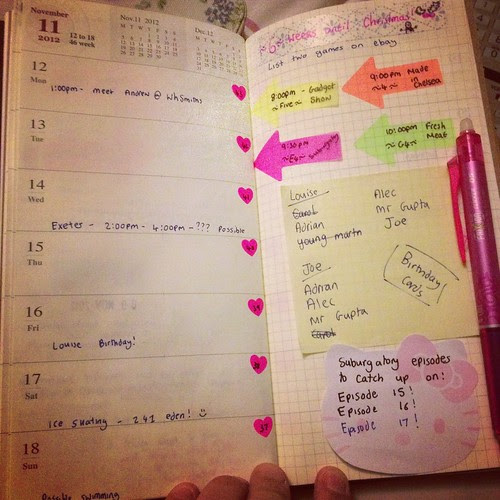 November
11
2012
12 to 18
46 week
Nov.11 2012
Dec.12
12
Mon
1:00pm - meet Andrew @ WhSmiths
13
Tue
14
Wed
Exeter - 2:00pm - 4:00pm - ??? Possible
15
Thu
16
Fri
Louise Birthday!
17
Sat
Ice skating - 241 eden!
18
Sun
Possible swimming
37
6 Weeks until Christmas
List two games on ebay
8:00pm - Gadget
~ Five ~ Show
9:00pm Made
~4~ in
Chelsea
9:30pm
~E4~
10:00pm Fresh
~C4~ Meat
Louise
Carol
Adrian
young martn
Alec
Mr Gupta
Joe
Joe
Adrian
Alec
Mr Gupta
Carol
Birthday
Cards
Suburgatory episodes
to catch up on:
Episode 15!
Episode 16!
Episode 17!